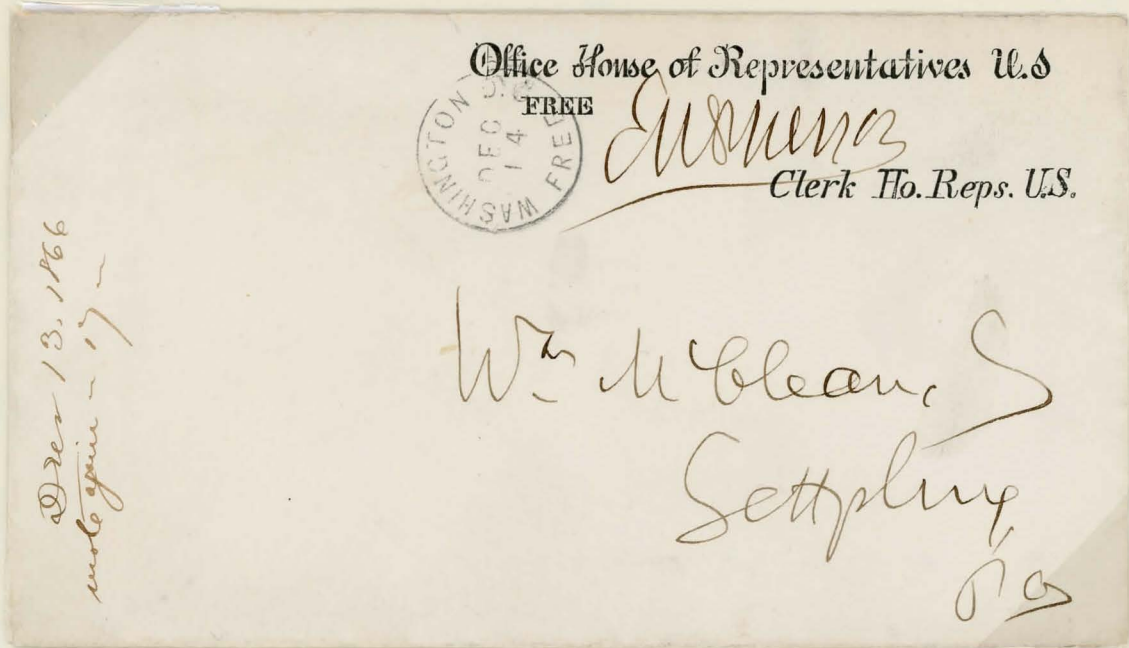 Office House of Representatives U.S
FREE
WASHINGTON D.C. FREE
DEC
14
Clerk Ho. Reps. U.S.
Wm McClean,
Gettysburg
Pa
Dec 13. 1866
wrote again - 17 -